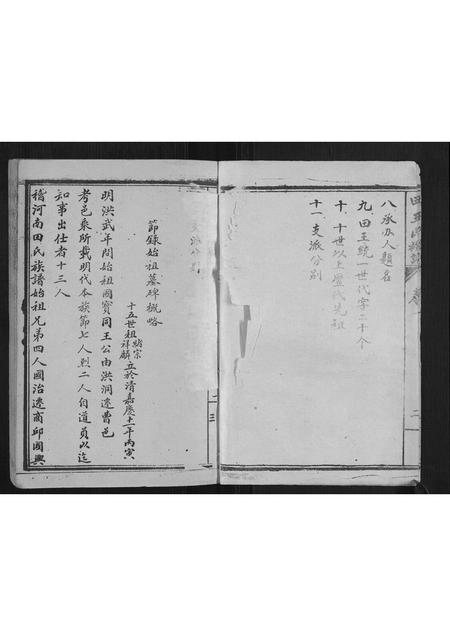 八承办人題名
九田王統一世代字二十个
十十世以上塋氏先祖
十一支派分别
支派分别
節錄始祖墓碑概略
十五世祖緒宗祥麟立於清嘉慶十一年丙寅
明洪武年間始祖國寶同王公由洪洞遷曹邑
考邑乘所載明代本族節七人烈二人自道員以迄
知事出仕者十三人
稽河南田氏族譜始祖兄弟四人國治遷商邱國興